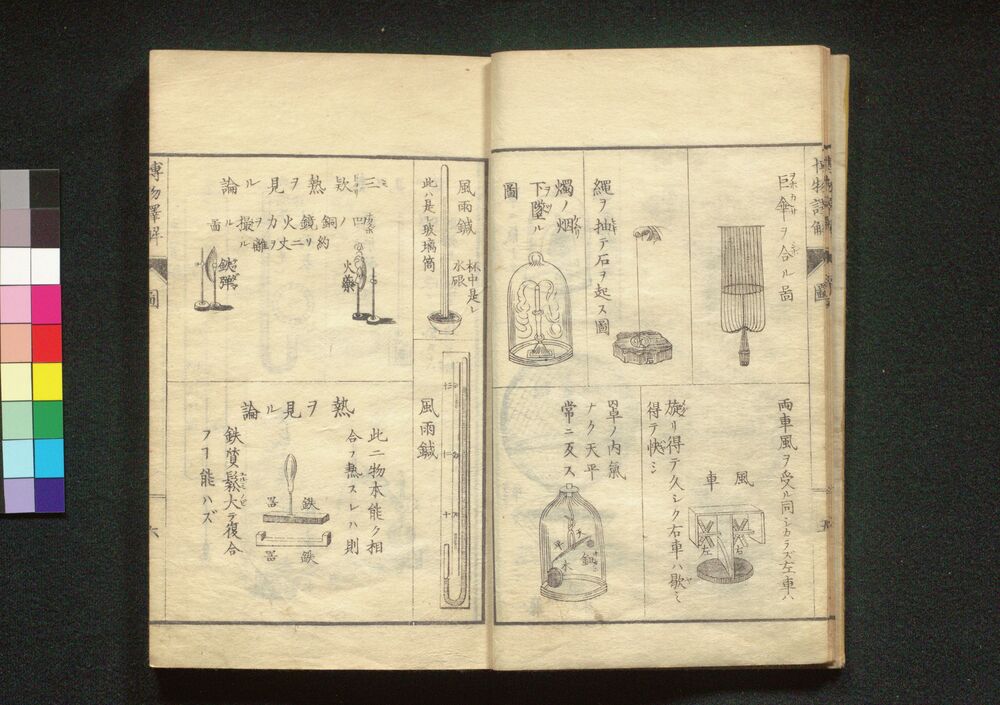 巨傘ヲ合ル啚
繩ヲ抽テ石ヲ起ス圖
石
燭ノ烟
下墜ル
圖
両車風ヲ受ル同シカラズ左車ハ
風車
左
右
旋リ得テ久シク右車ハ歇ミ
得テ快シ
罩ノ内氣
ナク天平
常ニ反ス
木
風雨鍼
杯中是レ
水銀
此ハ是レ玻璃筒
風雨鍼
熱ヲ見ル論
銅鏡火力ヲ撮ル啚
約リ二丈ヲ離ル
火藥
鉄彈
熱ヲ見ル論
此二物本能ク相
合フ熱スレハ則
鉄器
鉄器
鉄質鬆大テ復合
フヿ能ハズ
博物譯解
圖
六